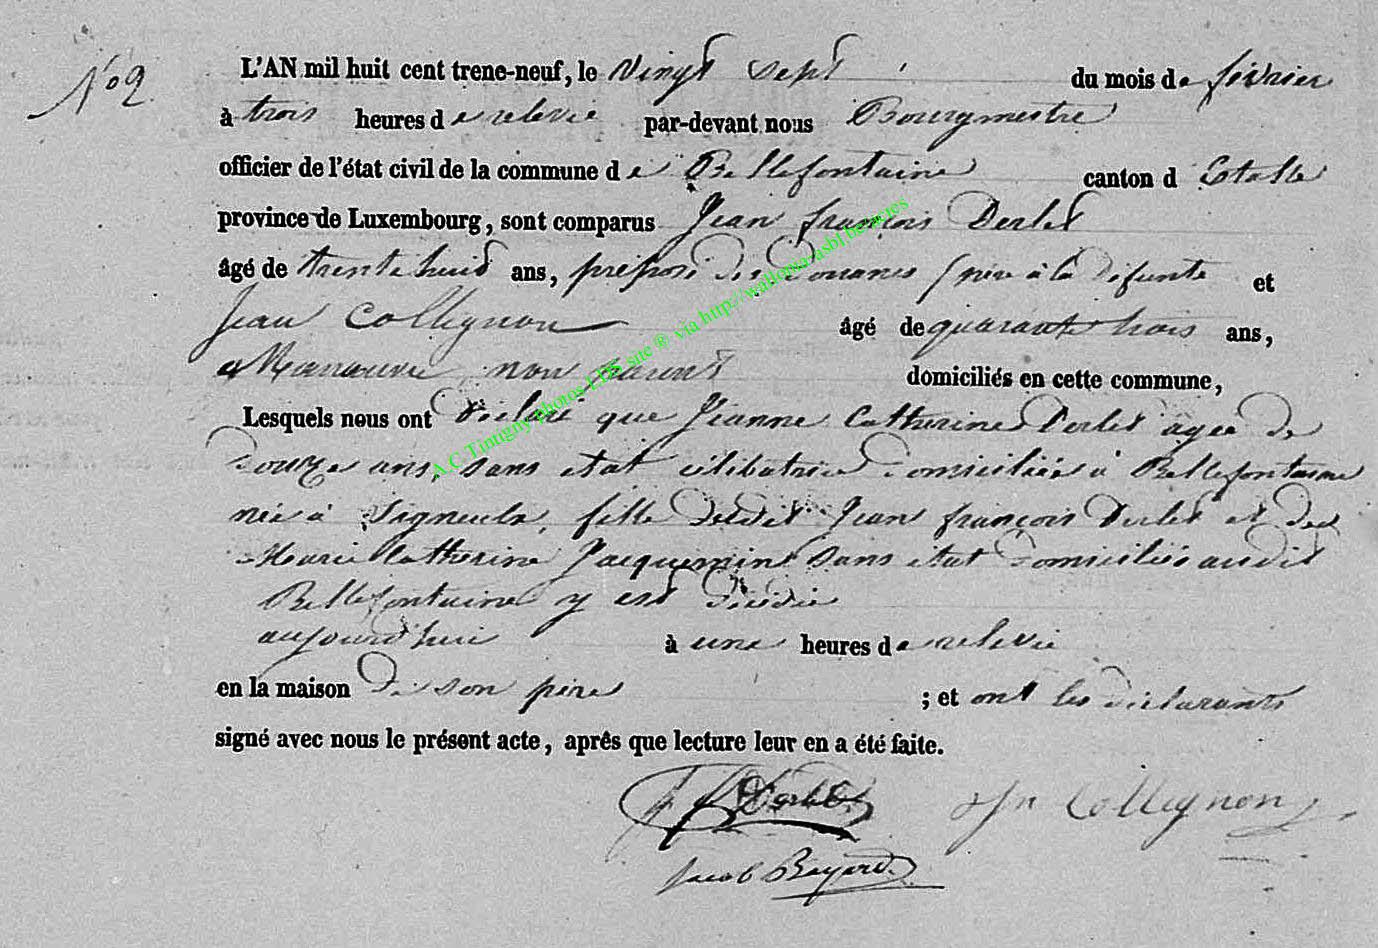 N° 2
L'AN mil huit cent trene-neuf, le vingt sept du mois de février
à trois heures de relevée par-devant nous Bourgmestre
officier de l'état civil de la commune de Bellefontaine canton d Etalle
province de Luxembourg, sont comparus Jean françois Derlet
âgé de trente huit ans, préposé des Douanes père à la défunte et
Jean Collignon âgé de quarante trois ans,
Manœuvre non parent domiciliés en cette commune,
Lesquels nous ont déclaré que Jeanne Catherine Derlet agée de
douze ans, sans état célibataire domiciliée à Bellefontaine
née à Signeulx, fille dudit Jean françois Derlet et de
Marie Catherine Jacquemin sans état domiciliés audit
Bellefontaine y est décédée
aujourd'hui à une heures de relevée
en la maison de son père ; et ont les déclarants
signé avec nous le présent acte, après que lecture leur en a été faite.
Derlet Jn Collignon
Jacob Bayard
A.C Tintigny photos LDE site ® via http://wallonia-asbl.be/actes